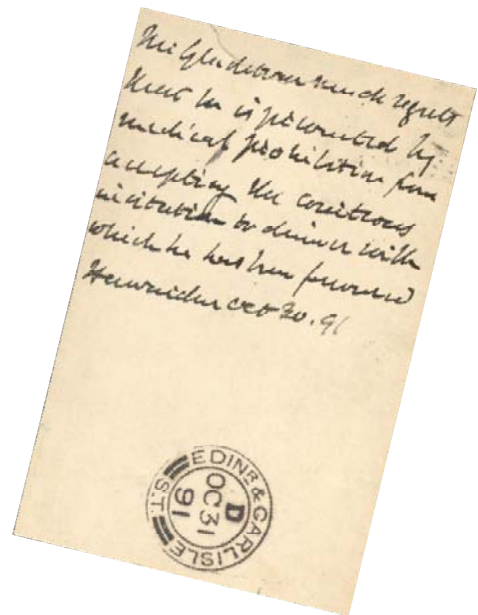 Mr Gladstone much regrets
that he is prevented by
medical prohibition from
accepting the courteous
invitation to dinner with
which he has been favoured
Hawarden Oct 30. 91
EDINR & CARLISLE S.T.
D
OC 31
91